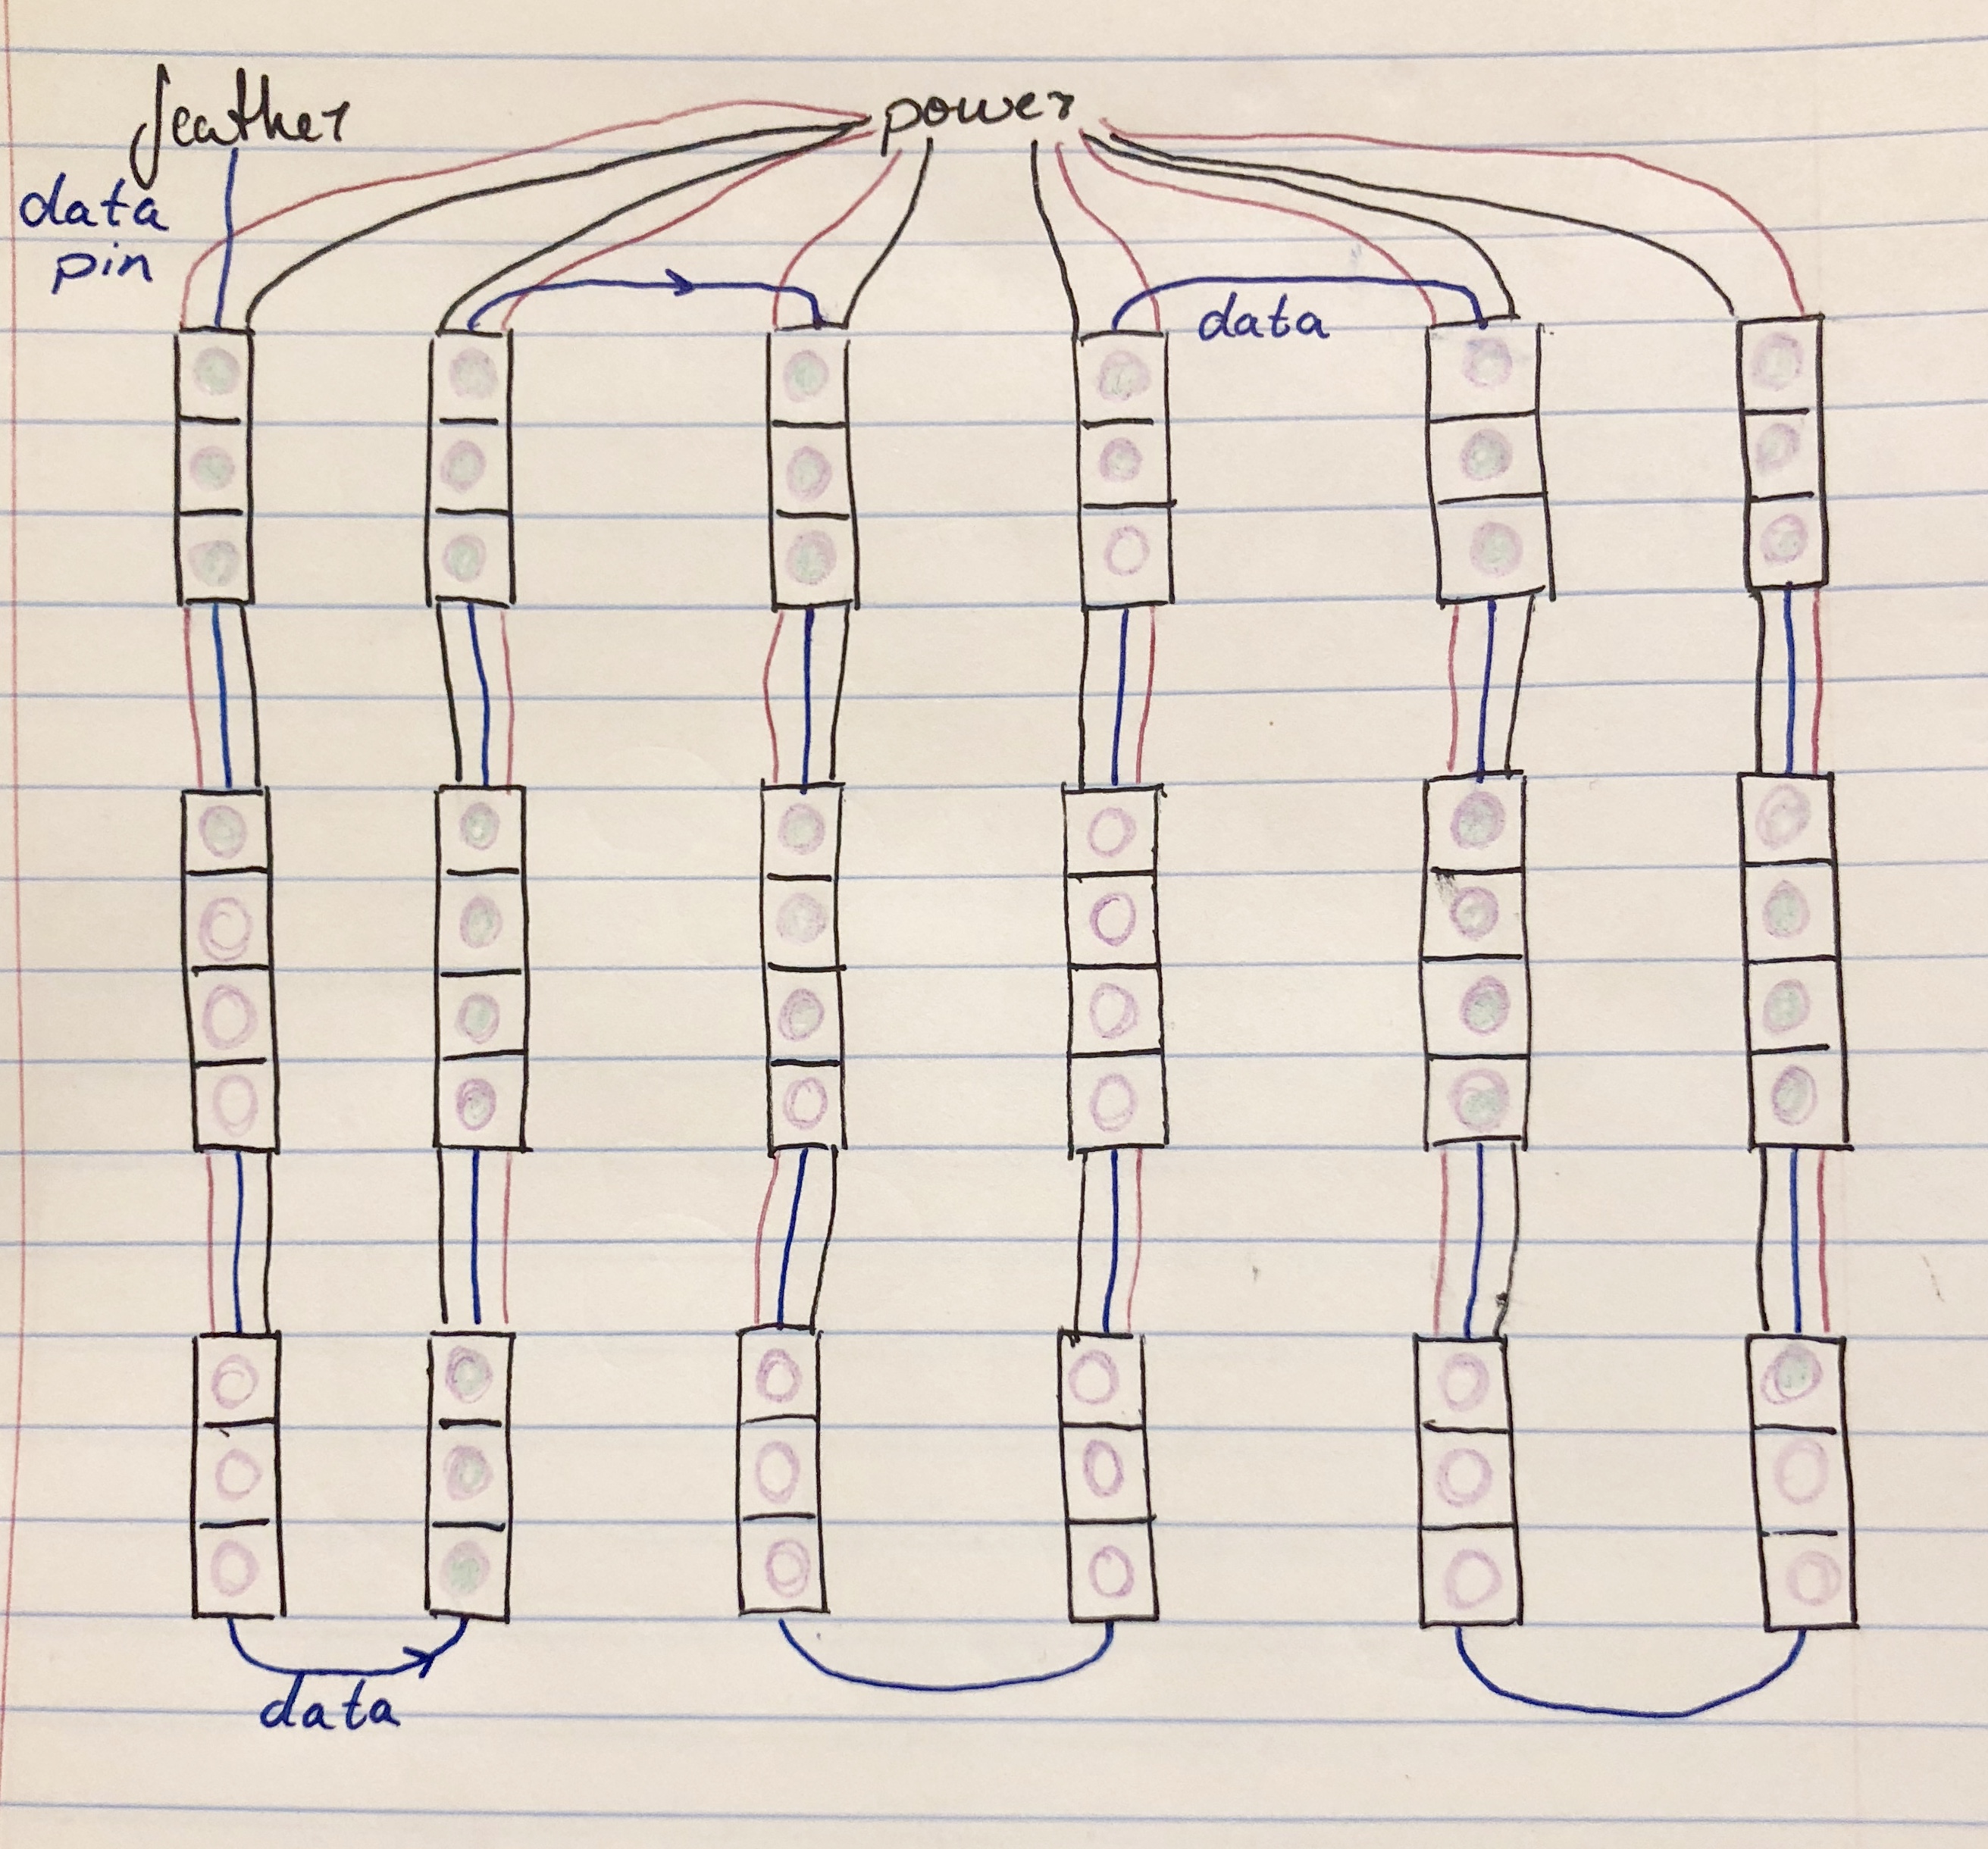 feather
power
data
pin
data
data